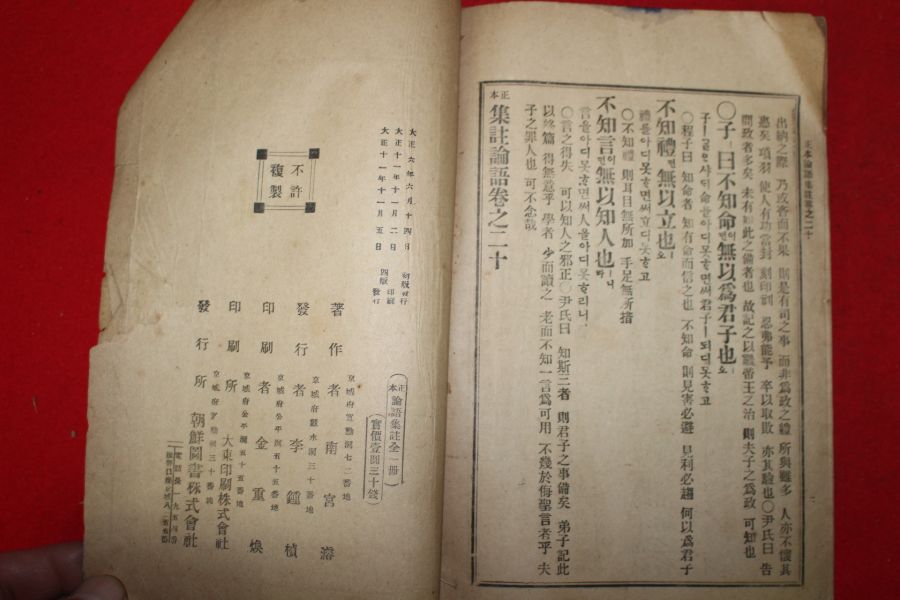 正本論語集註卷之二十
出納之際 乃或吝而不果 則是有司之事 而非爲政之體 所與雖多 人亦不懷其
惠矣 項羽 使人有功當封 刻印刓 忍弗能予 卒以取敗 亦其驗也○尹氏曰 告
問政者多矣 未有如此之備者也 故記之以繼帝王之治 則夫子之爲政 可知也
○子ㅣ曰不知命이면無以爲君子也오
子ㅣ글ᄋᆞ샤ᄃᆡ命을아디못ᄒᆞ면써君子ㅣ되디못ᄒᆞ고
○程子曰 知命者 知有命而信之也 不知命 則見害必避 見利必趨 何以爲君子
不知禮면無以立也오
禮를아디못ᄒᆞ면써立디못ᄒᆞ고
○不知禮 則耳目無所加 手足無所措
不知言이면無以知人也ㅣ니라
言을아디못ᄒᆞ면써人을아디못ᄒᆞ리니.
○言之得失 可以知人之邪正○尹氏曰 知斯三者 則君子之事備矣 弟子記此
以終篇 得無意乎 學者 少而讀之 老而不知一言爲可用 不幾於侮聖言者乎 夫
子之罪人也 可不念哉
正本集註論語卷之二十
大正六年六月十四日 初版發行
大正十一年十一月二日 印刷
大正十一年十一月五日 四版發行
不許
複製
正本論語集註全一冊
(實價壹圓三十錢)
著作者 南宮濬
發行者 京城府觀水洞三十番地 李鍾楨
印刷者 京城府公平洞五十五番地 金重煥
印刷所 京城府公平洞五十五番地 大東印刷株式會社
發行所 朝鮮圖書株式會社